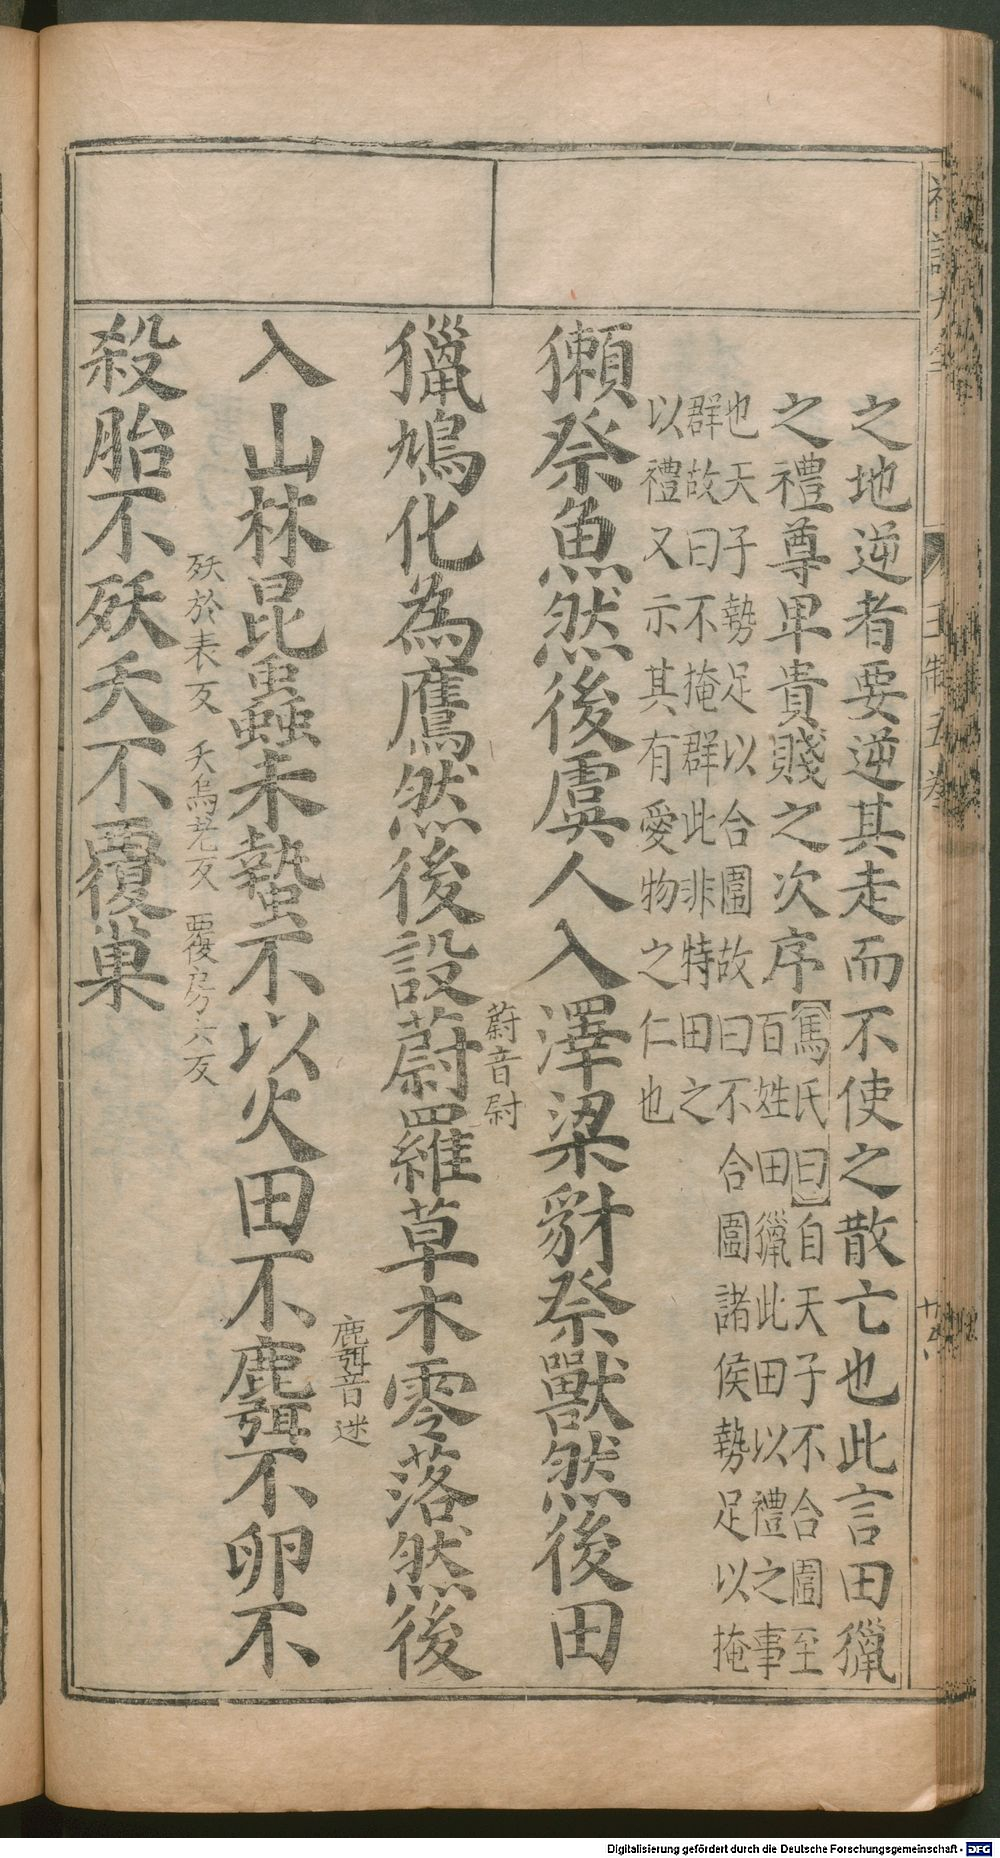 之地逆者要逆其走而不使之散亡也此言田獵
之禮尊卑貴賤之次序
【馮氏曰】自天子不合圍至
百姓田獵此田以禮之事
也天子勢足以合圍故曰不合圍諸侯勢足以掩
群故曰不掩群此非特田之
以禮又示其有愛物之仁也
獺祭魚然後虞人入澤梁豺祭獸然後田
蔚音尉
獵鳩化為鷹然後設蔚羅草木零落然後
麛音迷
入山林昆蟲未蟄不以火田不麛不卵不
殀於表反 夭烏老反 覆房六反
殺胎不殀夭不覆巢
王制五卷
Digitalisierung gefördert durch die Deutsche Forschungsgemeinschaft - DFG